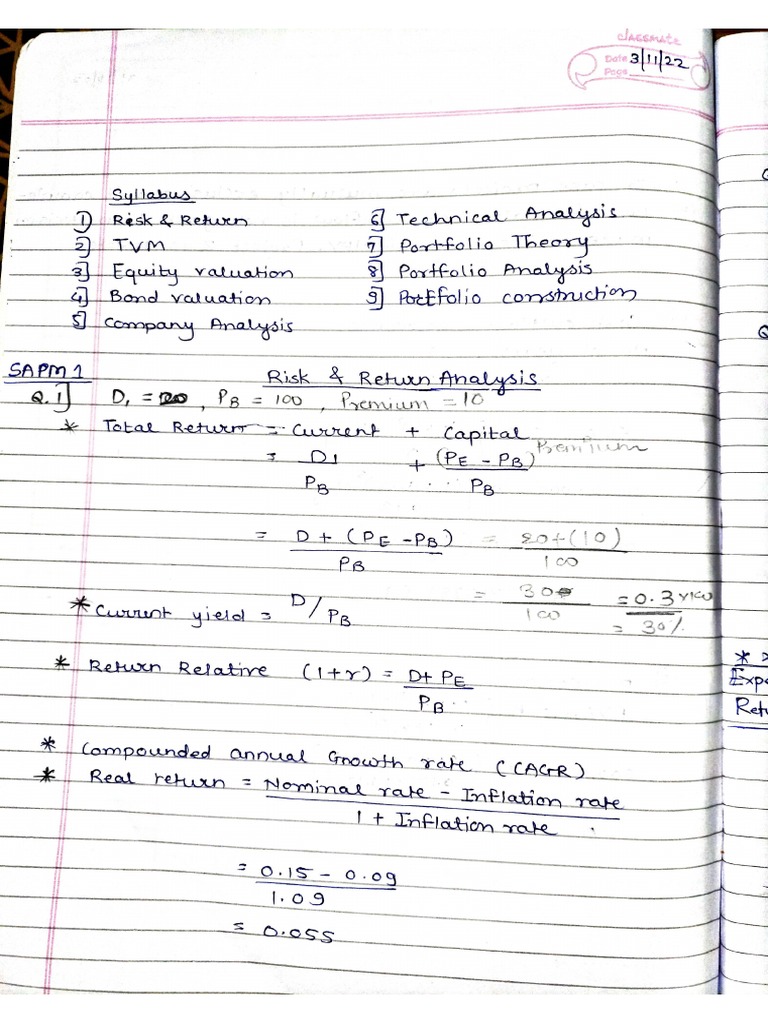 classmate
Date 3/11/22
Page
Syllabus
1) Risk & Return
2] TVM
3] Equity valuation
4] Bond valuation
5] Company Analysis
6] Technical Analysis
7] Portfolio Theory
8] Portfolio Analysis
9] Portfolio construction
SAPM 1
Risk & Return Analysis
Q.1] D₁ = 20, P_B = 100, Premium = 10
* Total Return = Current + Capital
= D₁/P_B + (P_E - P_B)/P_B Premium
= D + (P_E - P_B)/P_B = 20+(10)/100
= 30/100 = 0.3 × 100
= 30%
* Current yield = D/P_B
* Return Relative (1+r) = D+ P_E/P_B
* Compounded annual Growth rate (CAGR)
* Real return = Nominal rate - Inflation rate
1 + Inflation rate
= 0.15 - 0.09
1.09
= 0.055
Exp
Ret